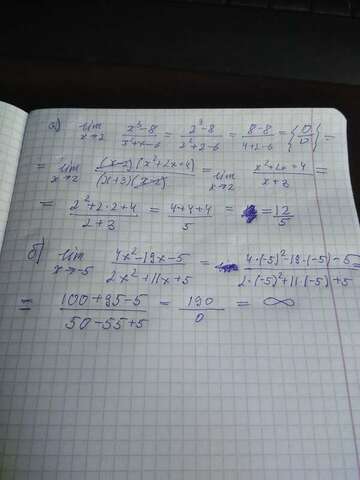 а) lim x→2 x³-8 / x²+x-6 = 2³-8 / 2²+2-6 = 8-8 / 4+2-6 = {0/0} =
= lim x→2 (x-2)(x²+2x+4) / (x+3)(x-2) = lim x→2 x²+2x+4 / x+3 =
= 2²+2·2+4 / 2+3 = 4+4+4 / 5 = 12/5
б) lim x→-5 4x²-19x-5 / 2x²+11x+5 = 4·(-5)²-19·(-5)-5 / 2·(-5)²+11·(-5)+5 =
= 100+95-5 / 50-55+5 = 190 / 0 = ∞